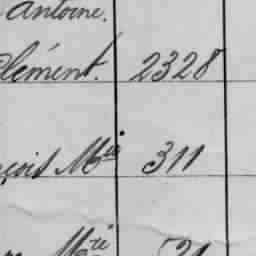 Antoine.
Clément. 2328
çois M^ie 311
M^ie 21